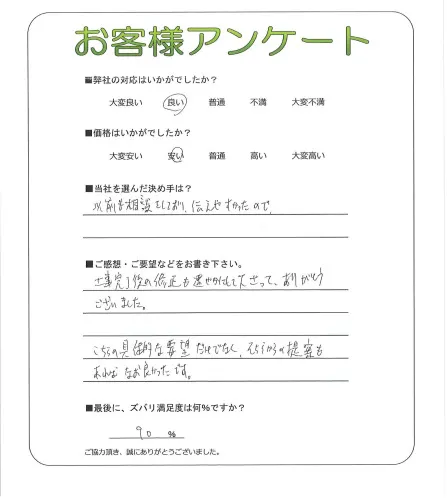 お客様アンケート
■弊社の対応はいかがでしたか？
大変良い 良い 普通 不満 大変不満
■価格はいかがでしたか？
大変安い 安い 普通 高い 大変高い
■当社を選んだ決め手は？
以前も相談をしており、伝えやすかったので、
■ご感想・ご要望などをお書き下さい。
工事完了後の修正も 下さって、ありがとう
ございました。
こちらの具体的な要望だけでなく、そちらからの提案も
あればなお良かったです。
■最後に、ズバリ満足度は何%ですか？
90 %
ご協力頂き、誠にありがとうございました。